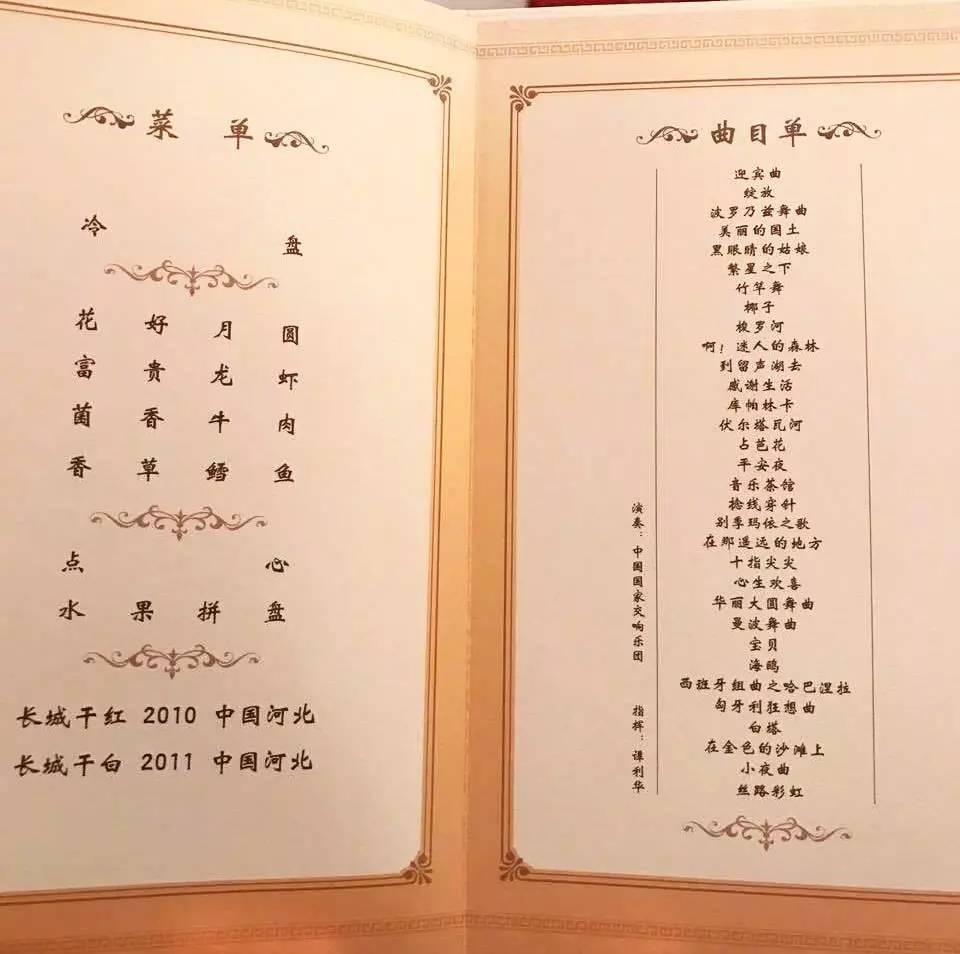 菜 单
冷 盘
花 好 月 圆
富 贵 龙 虾
菌 香 牛 肉
香 草 鳕 鱼
点 心
水 果 拼 盘
长城干红 2010 中国河北
长城干白 2011 中国河北
曲目单
迎宾曲
绽放
波罗乃兹舞曲
美丽的国土
黑眼睛的姑娘
繁星之下
竹竿舞
椰子
梭罗河
啊！迷人的森林
到留声湖去
感谢生活
库帕林卡
伏尔塔瓦河
占芭花
平安夜
音乐茶馆
捻线穿针
别季玛依之歌
在那遥远的地方
十指尖尖
心生欢喜
华丽大圆舞曲
曼波舞曲
宝贝
海鸥
西班牙组曲之哈巴涅拉
匈牙利狂想曲
白塔
在金色的沙滩上
小夜曲
丝路彩虹
演奏：中国国家交响乐团
指挥：谭利华